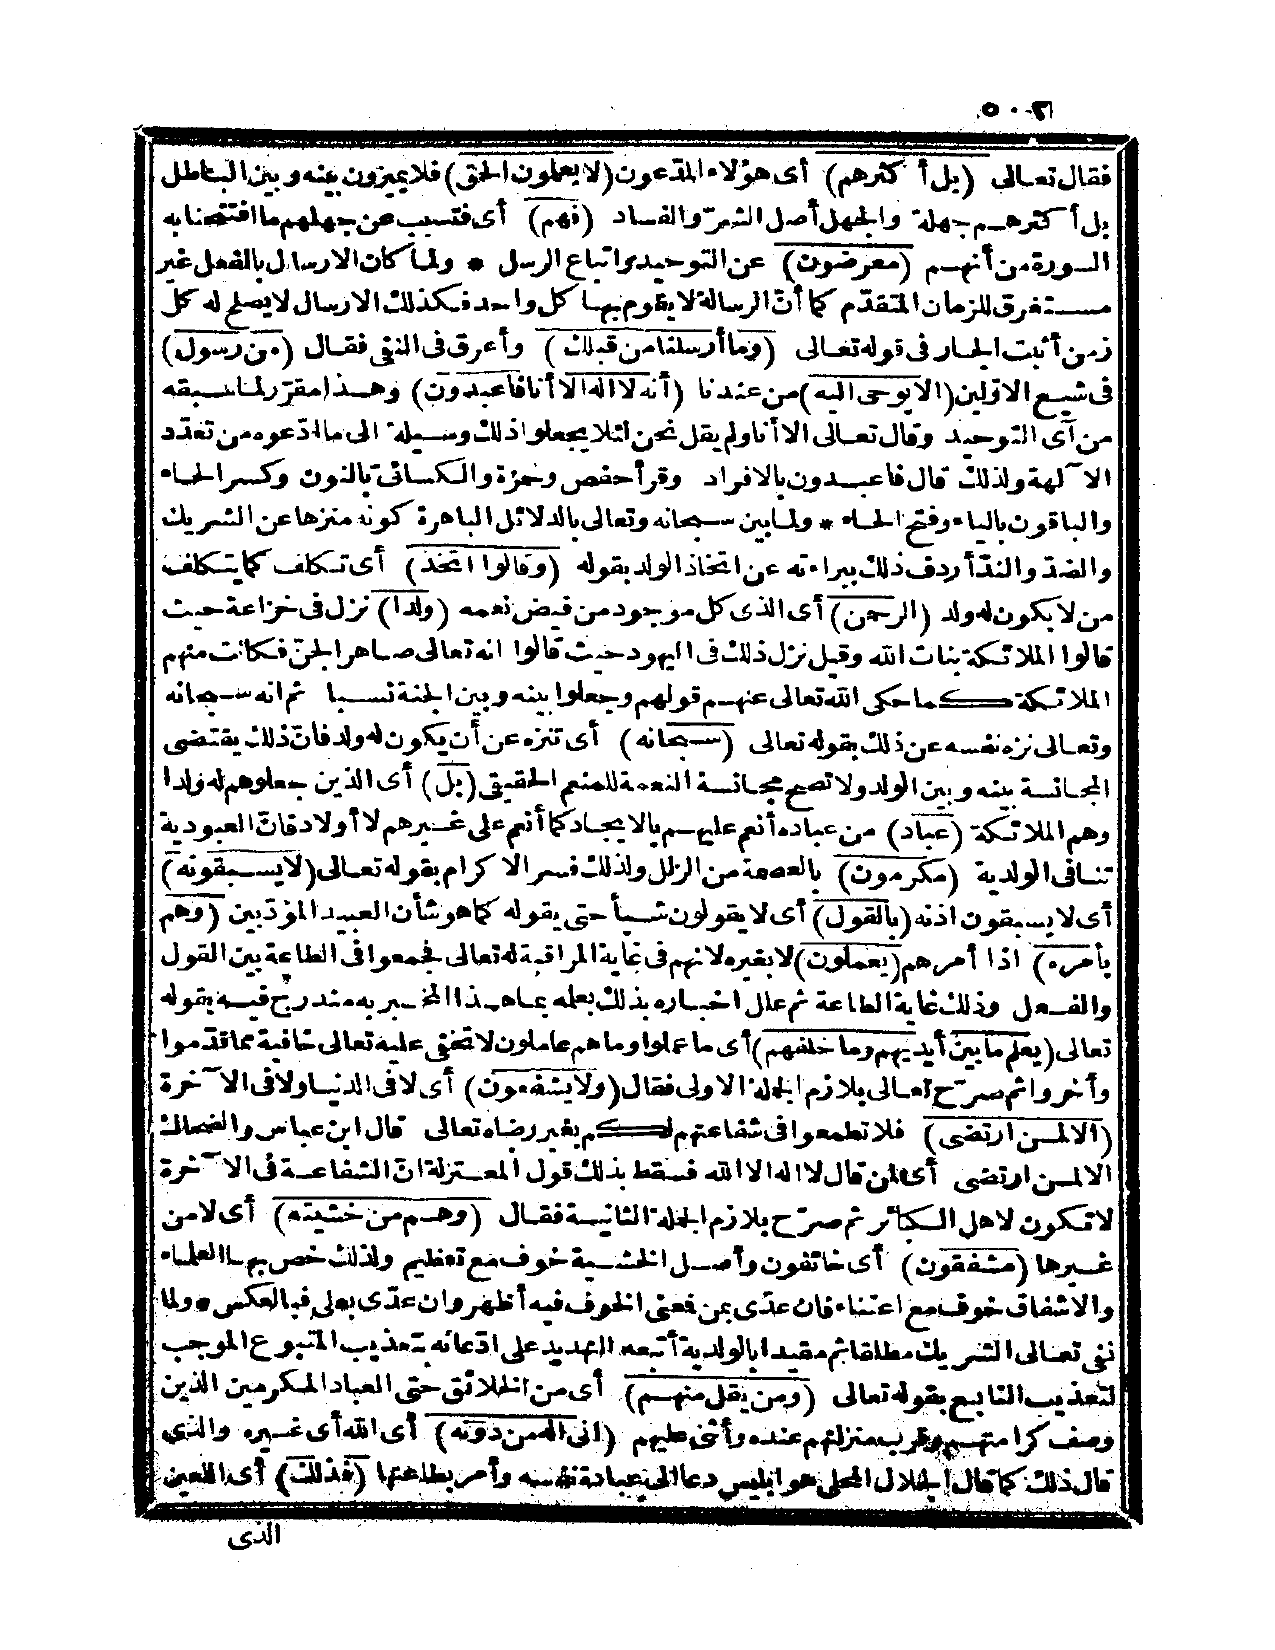 ٥٠٢
فقال تعالى (بل أكثرهم) أى هؤلاء المدّعون (لا يعلمون الحق) فلا يميزون بينه وبين الباطل
بل أكثرهم جهلة والجهل أصل الشرّ والفساد (فهم) أى فتسبب عن جهلهم ما افتتحنا به
السورة من أنهم (معرضون) عن التوحيد واتباع الرسل * ولما كان الارسال بالفعل غير
مستغرق للزمان المتقدّم كما أنّ الرسالة لا يقوم بها كل واحد فكذلك الارسال لا يصلح له كل
زمن أثبت الجار فى قوله تعالى (وما أرسلنا من قبلك) وأعرق فى النفى فقال (من رسول)
فى شيع الاوّلين (الا يوحى اليه) من عندنا (أنه لا اله الا أنا فاعبدون) وهذا مقرّر لما سبقه
من آى التوحيد وقال تعالى الا أنا ولم يقل نحن لئلا يجعلوا ذلك وسيلة الى ما ادّعوه من تعدّد
الآلهة ولذلك قال فاعبدون بالافراد وقرأ حفص وحمزة والكسائى بالنون وكسر الحاء
والباقون بالياء وفتح الحاء * ولما بين سبحانه وتعالى بالدلائل الباهرة كونه منزها عن الشريك
والضدّ والندّ أردف ذلك ببراءته عن اتخاذ الولد بقوله (وقالوا اتخذ) أى تكلف كما يتكلف
من لا يكون له ولد (الرحمن) أى الذى كل موجود من فيض نعمه (ولدا) نزل فى خزاعة حيث
قالوا الملائكة بنات الله وقيل نزل ذلك فى اليهود حيث قالوا انه تعالى صاهر الجنّ فكانت منهم
الملائكة كما حكى الله تعالى عنهم قولهم وجعلوا بينه وبين الجنة نسبا ثم انه سبحانه
وتعالى نزه نفسه عن ذلك بقوله تعالى (سبحانه) أى تنزه عن أن يكون له ولد فانّ ذلك يقتضى
المجانسة بينه وبين الولد ولا تصح مجانسة النعمة للمنعم الحقيقى (بل) أى الذين جعلوهم له ولدا
وهم الملائكة (عباد) من عباده أنعم عليهم بالايجاد كما أنعم على غيرهم لا أولاد فانّ العبودية
تنافى الولدية (مكرمون) بالعصمة من الزلل ولذلك فسر الاكرام بقوله تعالى (لا يسبقونه)
أى لا يسبقون اذنه (بالقول) أى لا يقولون شيأ حتى يقوله كما هو شأن العبيد المؤدّبين (وهم
بأمره) اذا أمرهم (يعملون) لا بغيره لانهم فى غاية المراقبة له تعالى فجمعوا فى الطاعة بين القول
والفعل وذلك غاية الطاعة ثم علل اخباره بذلك بعلمه بما هذا المخبر به مندرج فيه بقوله
تعالى (يعلم ما بين أيديهم وما خلفهم) أى ما عملوا وما هم عاملون لا تخفى عليه تعالى خافية مما قدّموا
وأخروا ثم صرّح تعالى بلازم الجملة الاولى فقال (ولا يشفعون) أى لا فى الدنيا ولا فى الآخرة
(الا لمن ارتضى) فلا تطمعوا فى شفاعتهم لكم بغير رضاه تعالى قال ابن عباس والضحاك
الا لمن ارتضى أى لمن قال لا اله الا الله فسقط بذلك قول المعتزلة انّ الشفاعة فى الآخرة
لا تكون لاهل الكبائر ثم صرّح بلازم الجملة الثانية فقال (وهم من خشيته) أى لا من
غيرها (مشفقون) أى خائفون وأصل الخشية خوف مع تعظيم ولذلك خص بها العلماء
والاشفاق خوف مع اعتناء فان عدّى بمن فمعنى الخوف فيه أظهر وان عدّى بعلى فبالعكس * ولما
نفى تعالى الشريك مطلقا ثم مقيدا بالولدية أتبعه التهديد على ادّعائه بتعذيب المتبوع الموجب
لتعذيب التابع بقوله تعالى (ومن يقل منهم) أى من الخلائق حتى العباد المكرمين الذين
وصف كرامتهم وقرب منزلتهم عنده وأثنى عليهم (انى اله من دونه) أى الله أى غيره والذى
قال ذلك كما قال الجلال المحلى هو ابليس دعا الى عبادة نفسه وأمر بطاعتها (فذلك) أى اللعين
الذى